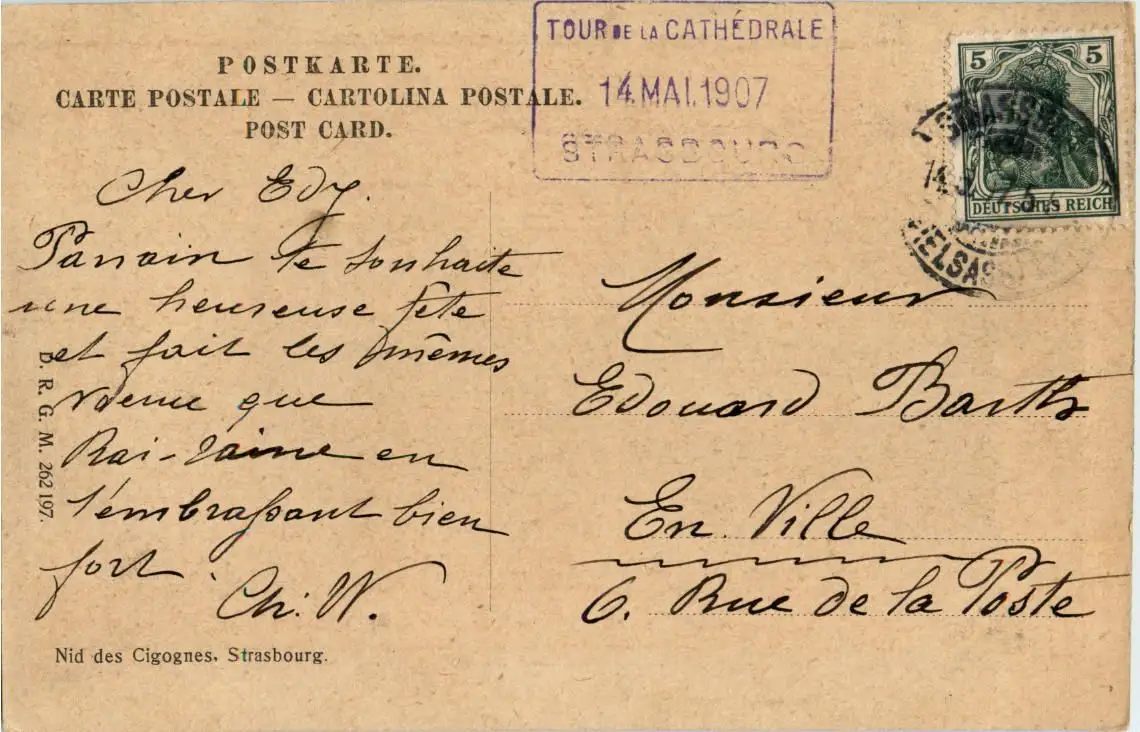 POSTKARTE.
CARTE POSTALE — CARTOLINA POSTALE.
POST CARD.
TOUR DE LA CATHÉDRALE
14.MAI.1907
STRASBOURG
5 5
DEUTSCHES REICH
Cher Edy.
Parrain te souhaite
une heureuse fête
et fait les mêmes
que
en
t'embrassant bien
fort.
Ch. W.
D. R. G. M. 262197.
Nid des Cigognes, Strasbourg.
Monsieur
Edouard Barth
En Ville
6. Rue de la Poste